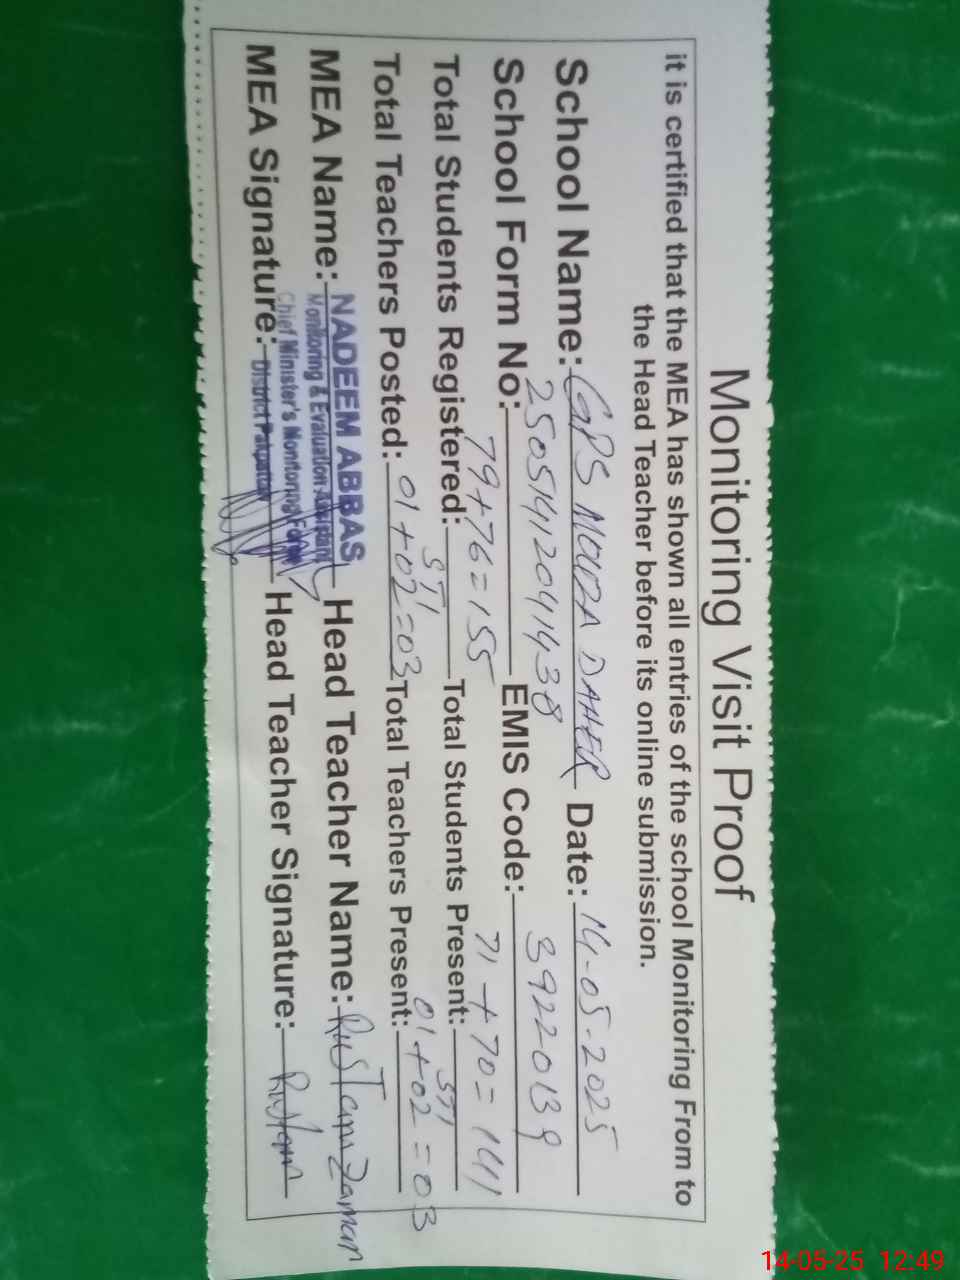 Monitoring Visit Proof
it is certified that the MEA has shown all entries of the school Monitoring From to
the Head Teacher before its online submission.
School Name: GPS MOUZA DAHER Date: 14-05-2025
School Form No: 25051412041438 EMIS Code: 39220139
Total Students Registered: 79+76=155 Total Students Present: 71+70=141
STI STI
Total Teachers Posted: 01+02=03 Total Teachers Present: 01+02=03
MEA Name: NADEEM ABBAS Head Teacher Name: RusTam Zaman
Monitoring & Evaluation Assistant
Chief Minister's Monitoring Force
MEA Signature: District Pakpattan Head Teacher Signature: Rustam
14-05-25 12:49